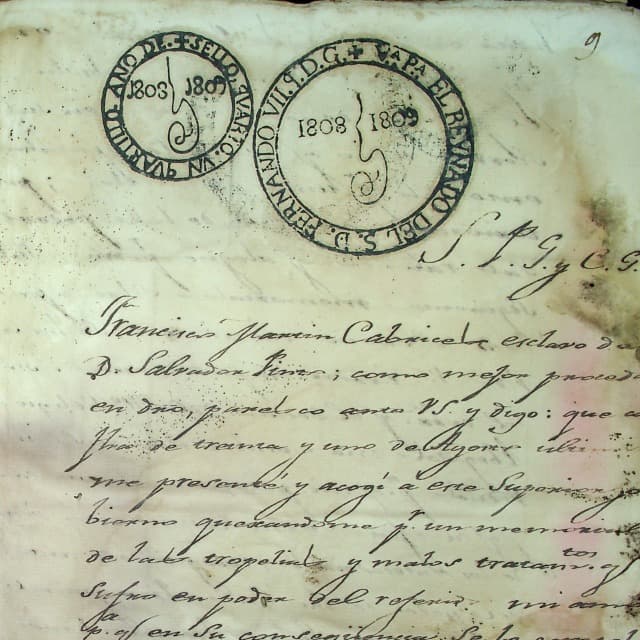 9
✝ SELLO QVARTO, VN QVARTILLO, AÑO DE
1808 1809
✝ V.A P.A EL REYNADO DEL S. D. FERNANDO VII. P. D. G.
1808 1809
S. P. G. y C. G.
Francisco Martin Cabrices esclavo de
D. Salvador; como mejor proced
en dro, paresco ante VS. y digo: que
fha de treinta y uno de Agosto ultimo
me presente y acogi a este Superior go
bierno quexandome pr. un memorial
de las tropelias y malos tratamtos. qe
sufro en poder del referido mi amo
pa. qe en su consequencia se le